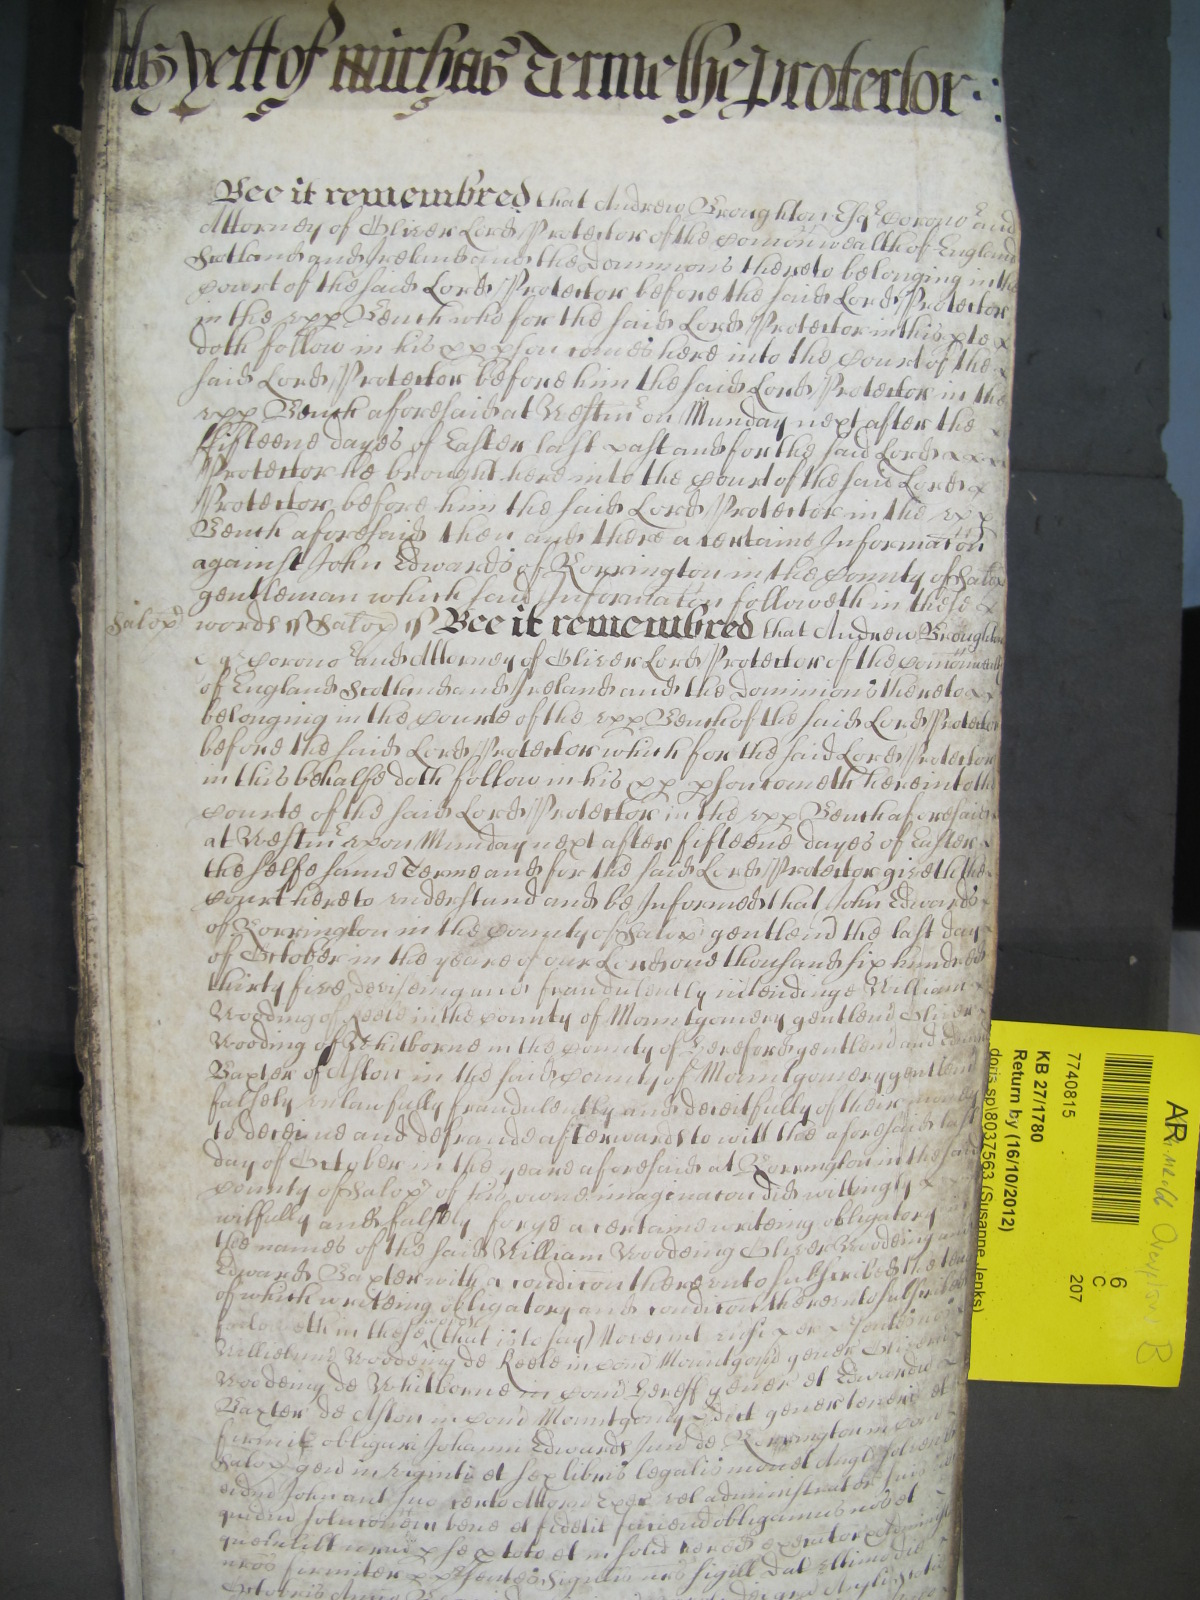 yett of michas Terme the Protector
Bee it remembred that Andrew Broughton Esqr corono and
Attorney of Oliver Lord Protector of the comonwealth of England
Scotland and Ireland and the dominions thereto belonging in the
court of the said Lord Protector before the said Lord Protector
in the upp Bench who for the said Lord Protector in this pte
doth follow in his pp pson comes here into the court of the
said Lord Protector before him the said Lord Protector in the
upp Bench aforesaid at Westmr on Munday next after the
fifteene dayes of Easter last past and for the said Lord
Protector he brought here into the court of the said Lord
Protector before him the said Lord Protector in the upp
Bench aforesaid then and there a certaine Informacon
against John Edwards of Rorrington in the county of Salop
gentleman which said Informacon followeth in these
Salop words Salop Bee it remembred that Andrew Broughton
corono and Attorney of Oliver Lord Protector of the comonwealth
of England Scotland and Ireland and the dominions thereto
belonging in the courte of the upp Bench of the said Lord Protector
before the said Lord Protector which for the said Lord Protector
in this behalfe doth follow in his pp pson cometh here into the
courte of the said Lord Protector in the upp Bench aforesaid
at Westmr upon Munday next after fifteene dayes of Easter
the selfe same Terme and for the said Lord Protector giveth the
court here to understand and be Informed that John Edwards
of Rorrington in the county of Salop gentlem the last day
of October in the yeare of our Lord one thousand six hundred
thirty five deviseing and fraudulently intendinge William
Wooding of Keele in the county of Mountgomery gentlem Oliver
Wooding of Whitborne in the county of Hereford gentlem and Edward
Baxter of Aston in the said county of Mountgomery gentlem
falsely unlawfully fraudulently and deceitfully of their money
to deceive and defraude afterwards to witt the aforesaid last
day of October in the yeare aforesaid at Rorrington in the said
county of Salop of his owne imaginacon did wittingly
wilfully and falsely forge a certaine writeing obligatory in
the names of the said William Woodeing Oliver Woodeing and
Edward Baxter with a condicon thereunto subscribed the tenor
of which writeing obligatory and condicon thereunto subscribed
followeth in these words (that is to say) Noverint univsi
Willielmu Woodeing de Keele in com Mountgomy gener Oliveru
Woodeing de Whitborne in com Hereff gener et Edwardu
Baxter de Aston in com Mountgomy gener teneri et
firmit obligari Johanni Edwards Jun de Rorrington in com
Salop gen in viginti et sex libris legalis monet Angl solvend
eidm Johanni aut suo certo Attorn Exec vel administrator suis
quidm solucoem bene et fidelit faciend obligamus nos et
quemlibt nrum p se p toto et in solid hered executor Administr
nros firmiter p psentes Sigillis nris sigill dat ultimo die
Octobris Anno
AR
6
C
207
7740815
KB 27/1780
Return by (16/10/2012)
doris.sp\8037563 (Susanne Jenks)
B